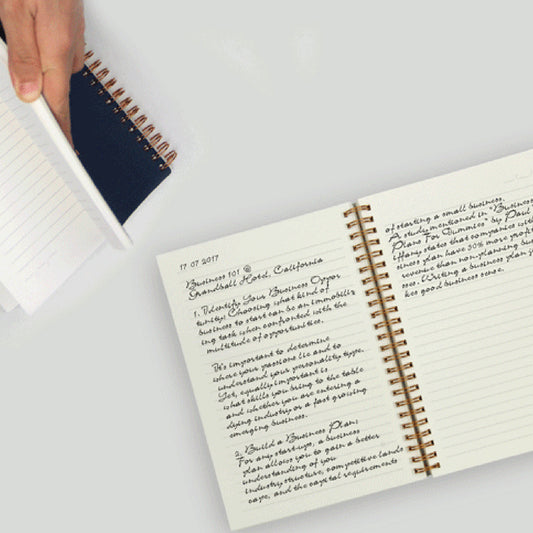 17 07 2017
Business 101 @
Grandball Hotel, California
1. Identify Your Business Oppor
tunity: Choosing what kind of
business to start can be an immobiliz
ing task when confronted with the
multitude of opportunities.
It's important to determine
where your passions lie and to
understand your personality type.
Yet, equally important is
what skills you bring to the table
and whether you are entering a
dying industry or a fast growing
emerging business.
2. Build a Business Plan:
For any start-ups, a business
plan allows you to gain a better
understanding of you
industry structure, competitive lands
cape, and the capital requirements
of starting a small business.
A study mentioned in "Business
Plans For Dummies" by Paul
states that companies with
siness plan have 50% more profit
revenue than non-planning bus
sses. Writing a business plan
kes good business sense.